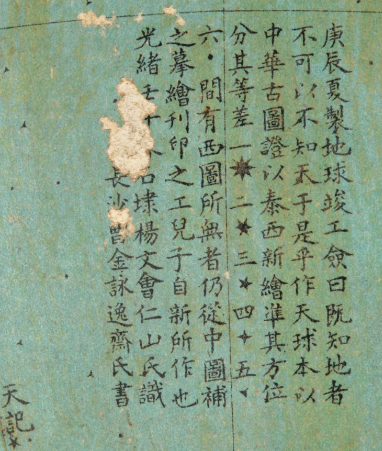 庚辰夏製地球竣工僉曰既知地者
不可以不知天于是乎作天球本以
中華古圖證以泰西新繪準其方位
分其等差一二三四五
六・間有西圖所無者仍從中圖補
之摹繪刊印之工兒子自新所作也
光緒壬午石埭楊文會仁山氏識
長沙曾金詠逸齋氏書
天記